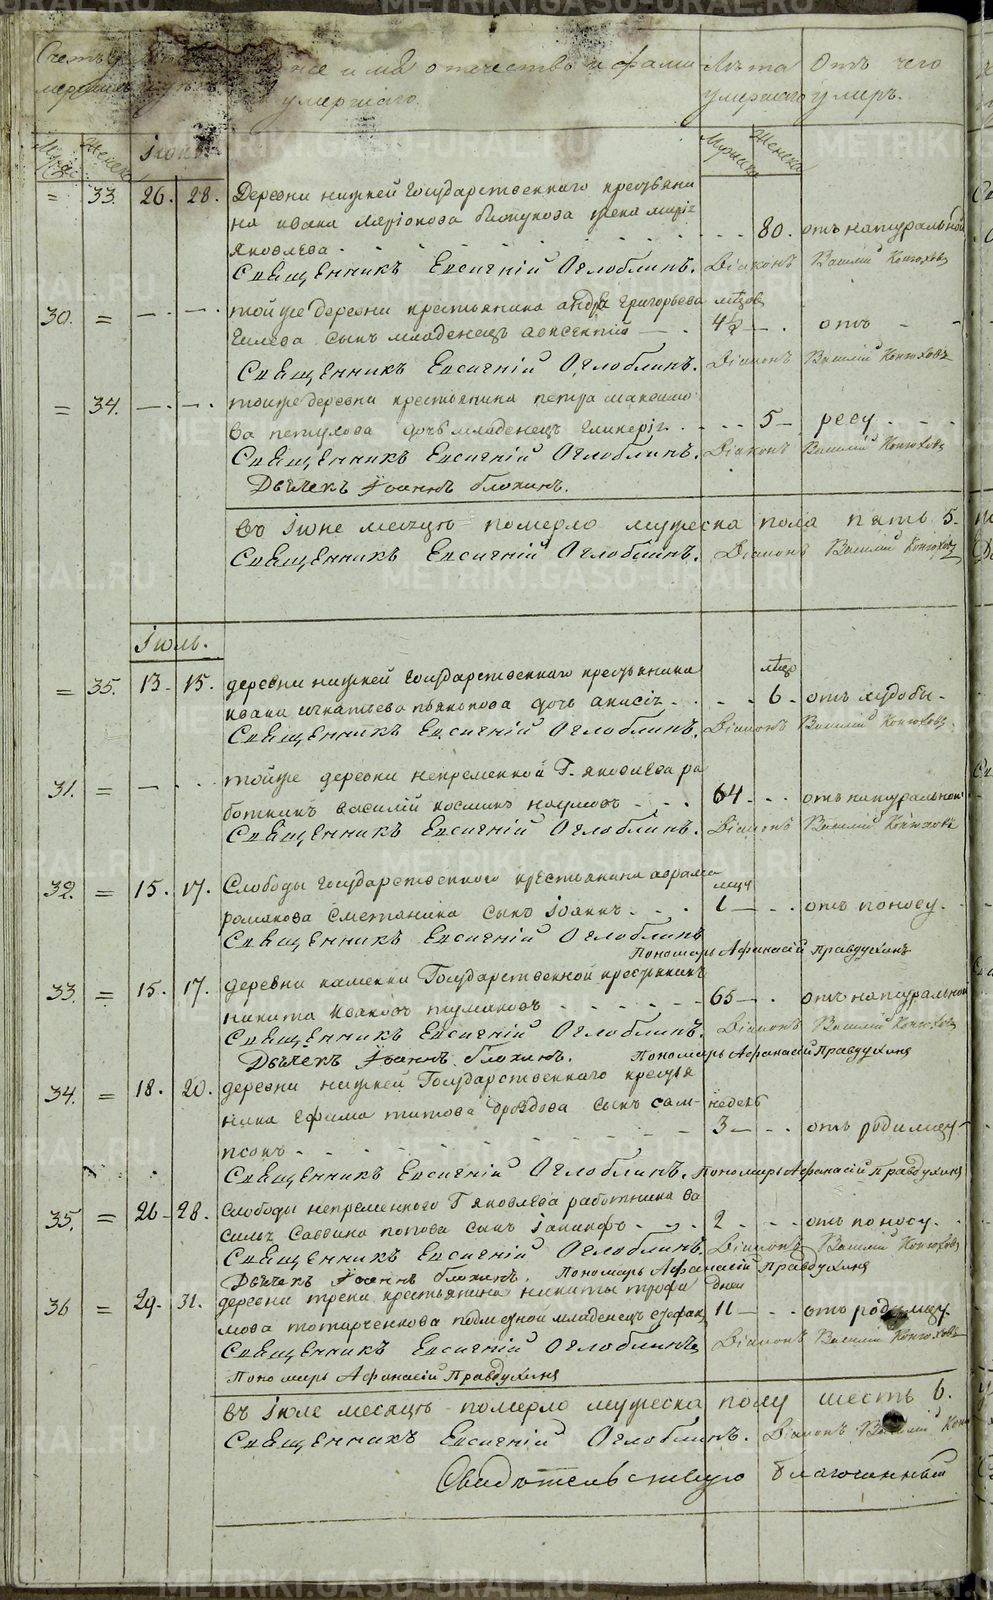 METRIKI.GASO-URAL.RU
имя отечество и фами Лѣта Отъ чего
умершаго. умершаго умеръ.
Іюнь.
= 33. 26. 28. Деревни нижней Государственнаго крестьяни
на ивана Ларіонова жена марія 80. отъ натуральной
яковлева
Священникъ Евсигній Оглоблинъ. Діаконъ Василій Конюховъ
30. = тойже деревни крестьянина андрея григорьева мѣсяцовъ
сынъ младенецъ авксентій 4½ отъ
Священникъ Евсигній Оглоблинъ. Діаконъ Василій Конюховъ
= 34. тойже деревни крестьянина петра максимо
ва петухова дочь младенецъ гликерія 5 ресу
Священникъ Евсигній Оглоблинъ. Діаконъ Василій Конюховъ
Дьячекъ Іоаннъ блохинъ.
въ Іюне месяцѣ померло мужеска пола пять 5.
Священникъ Евсигній Оглоблинъ. Діаконъ Василій Конюховъ
Іюль.
= 35. 13. 15. деревни нижней Государственнаго крестьянина
ивана игнатьева пьянкова дочь анисія 6. отъ худобы
Священникъ Евсигній Оглоблинъ. Діаконъ Василій Конюховъ
31. = тойже деревни непременной Г. яковлева ра
ботникъ василій космин наумовъ 64 отъ натуральной
Священникъ Евсигній Оглоблинъ. Діаконъ Василій Конюховъ
32. = 15. 17. Слободы государственнаго крестьянина аврама
романова Сметанина сынъ Іоаннъ 1 отъ поносу.
Священникъ Евсигній Оглоблинъ
Пономарь Афанасій Правдухинъ
33. = 15. 17. деревни каменки Государственной крестьянинъ
никита ивановъ тумаковъ 65 отъ натуральной
Священникъ Евсигній Оглоблинъ. Діаконъ Василій Конюховъ
Дьячекъ Іоаннъ блохинъ. Пономарь Афанасій Правдухинъ
34. = 18. 20. деревни нижней Государственнаго крестья
нина Ефима титова дроздова сынъ сам- недель
псонъ 3 отъ родимцу
Священникъ Евсигній Оглоблинъ. Пономарь Афанасій Правдухинъ
35. = 26. 28. слободы непременного Г яковлева работника ва
силья Саввина попова сынъ іакинфъ 2 отъ поносу.
Священникъ Евсигній Оглоблинъ. Діаконъ Василій Конюховъ
Дьячекъ Іоаннъ блохинъ. Пономарь Афанасій Правдухинъ
36 = 29. 31. деревни треки крестьянина никиты трофи дней
мова татарченкова младенецъ 11 отъ родимцу.
Священникъ Евсигній Оглоблинъ Діаконъ Василій Конюховъ
Пономарь Афанасій Правдухинъ
въ Іюле месяцѣ померло мужеска полу шесть 6.
Священникъ Евсигній Оглоблинъ. Діаконъ Василій
Свидетельствую благочинный